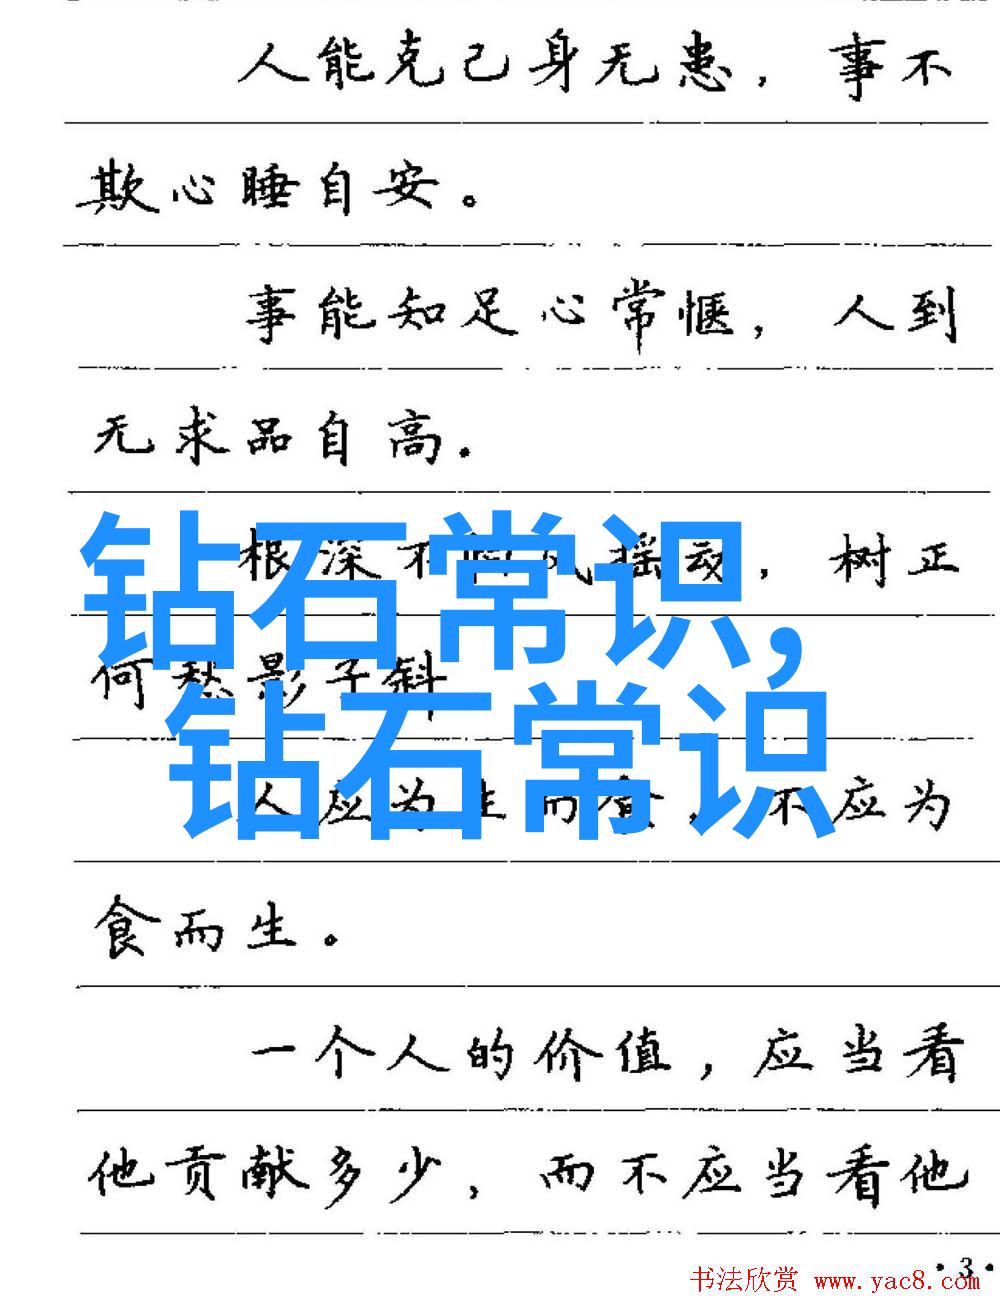 人能克己身无患，事不
欺心睡自安。
事能知足心常惬，人到
无求品自高.
根深不怕风摇动，树正
何愁影子斜
钻石常识,
钻石常识
人应为生而食，不应为
食而生。
一个人的价值，应当看
他贡献多少，而不应当看他
·3·
书法欣赏 www.yac8.com